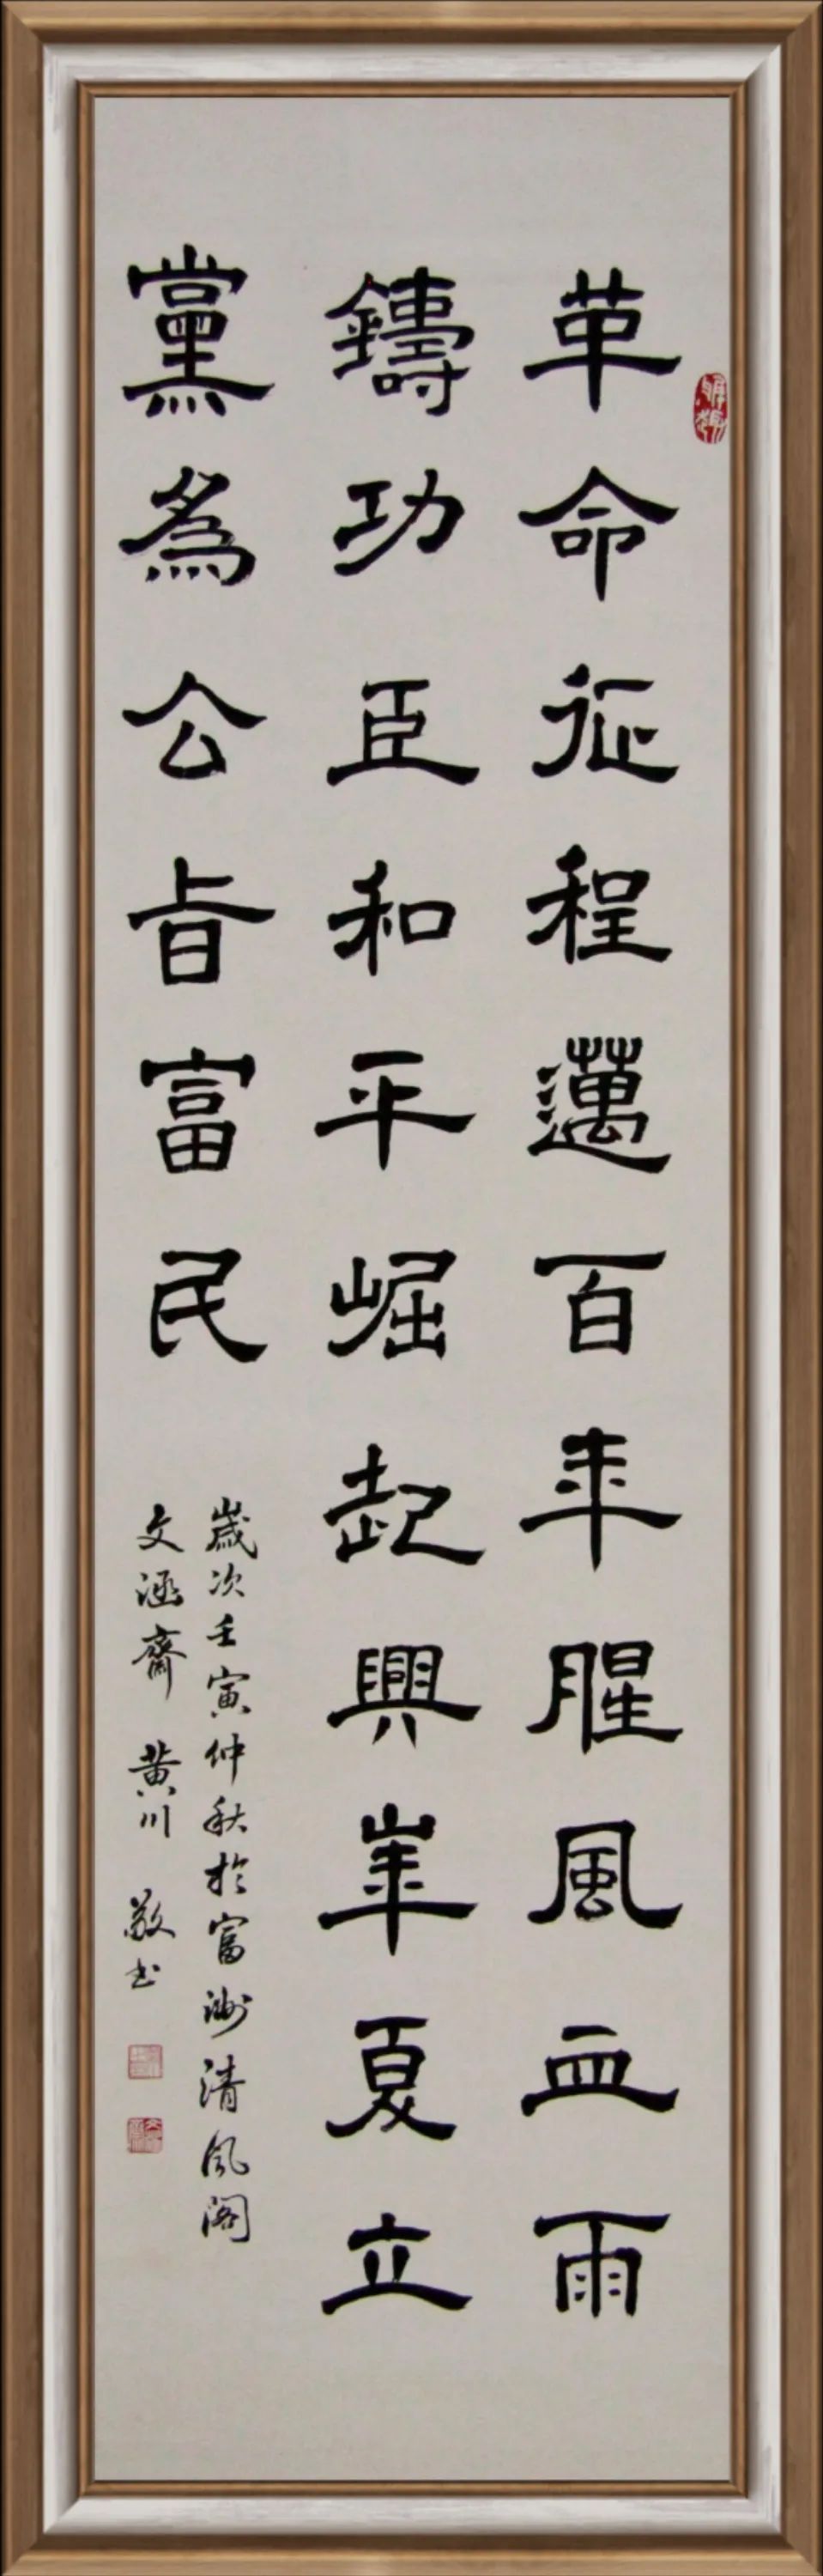 革命征程邁百年腥風血雨
鑄功臣和平崛起興華夏立
黨為公旨富民
歲次壬寅仲秋於富洲清風閣
文涵齋 黄川 敬书